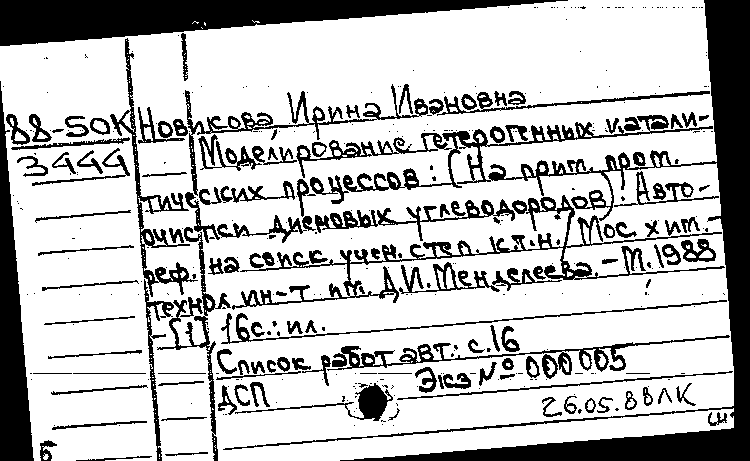 88-50К Новикова, Ирина Ивановна
3444 Моделирование гетерогенных катали-
тических процессов: (На прим. пром.
очистки диеновых углеводородов): Авто-
реф. на соиск. учен. степ. к.т.н. / Мос. хим.-
технол. ин-т им. Д.И. Менделеева. - М. 1988
- [1], 16с.: ил.
Список работ авт.: с.16
ДСП Экз № 000005
26.05.88
Б